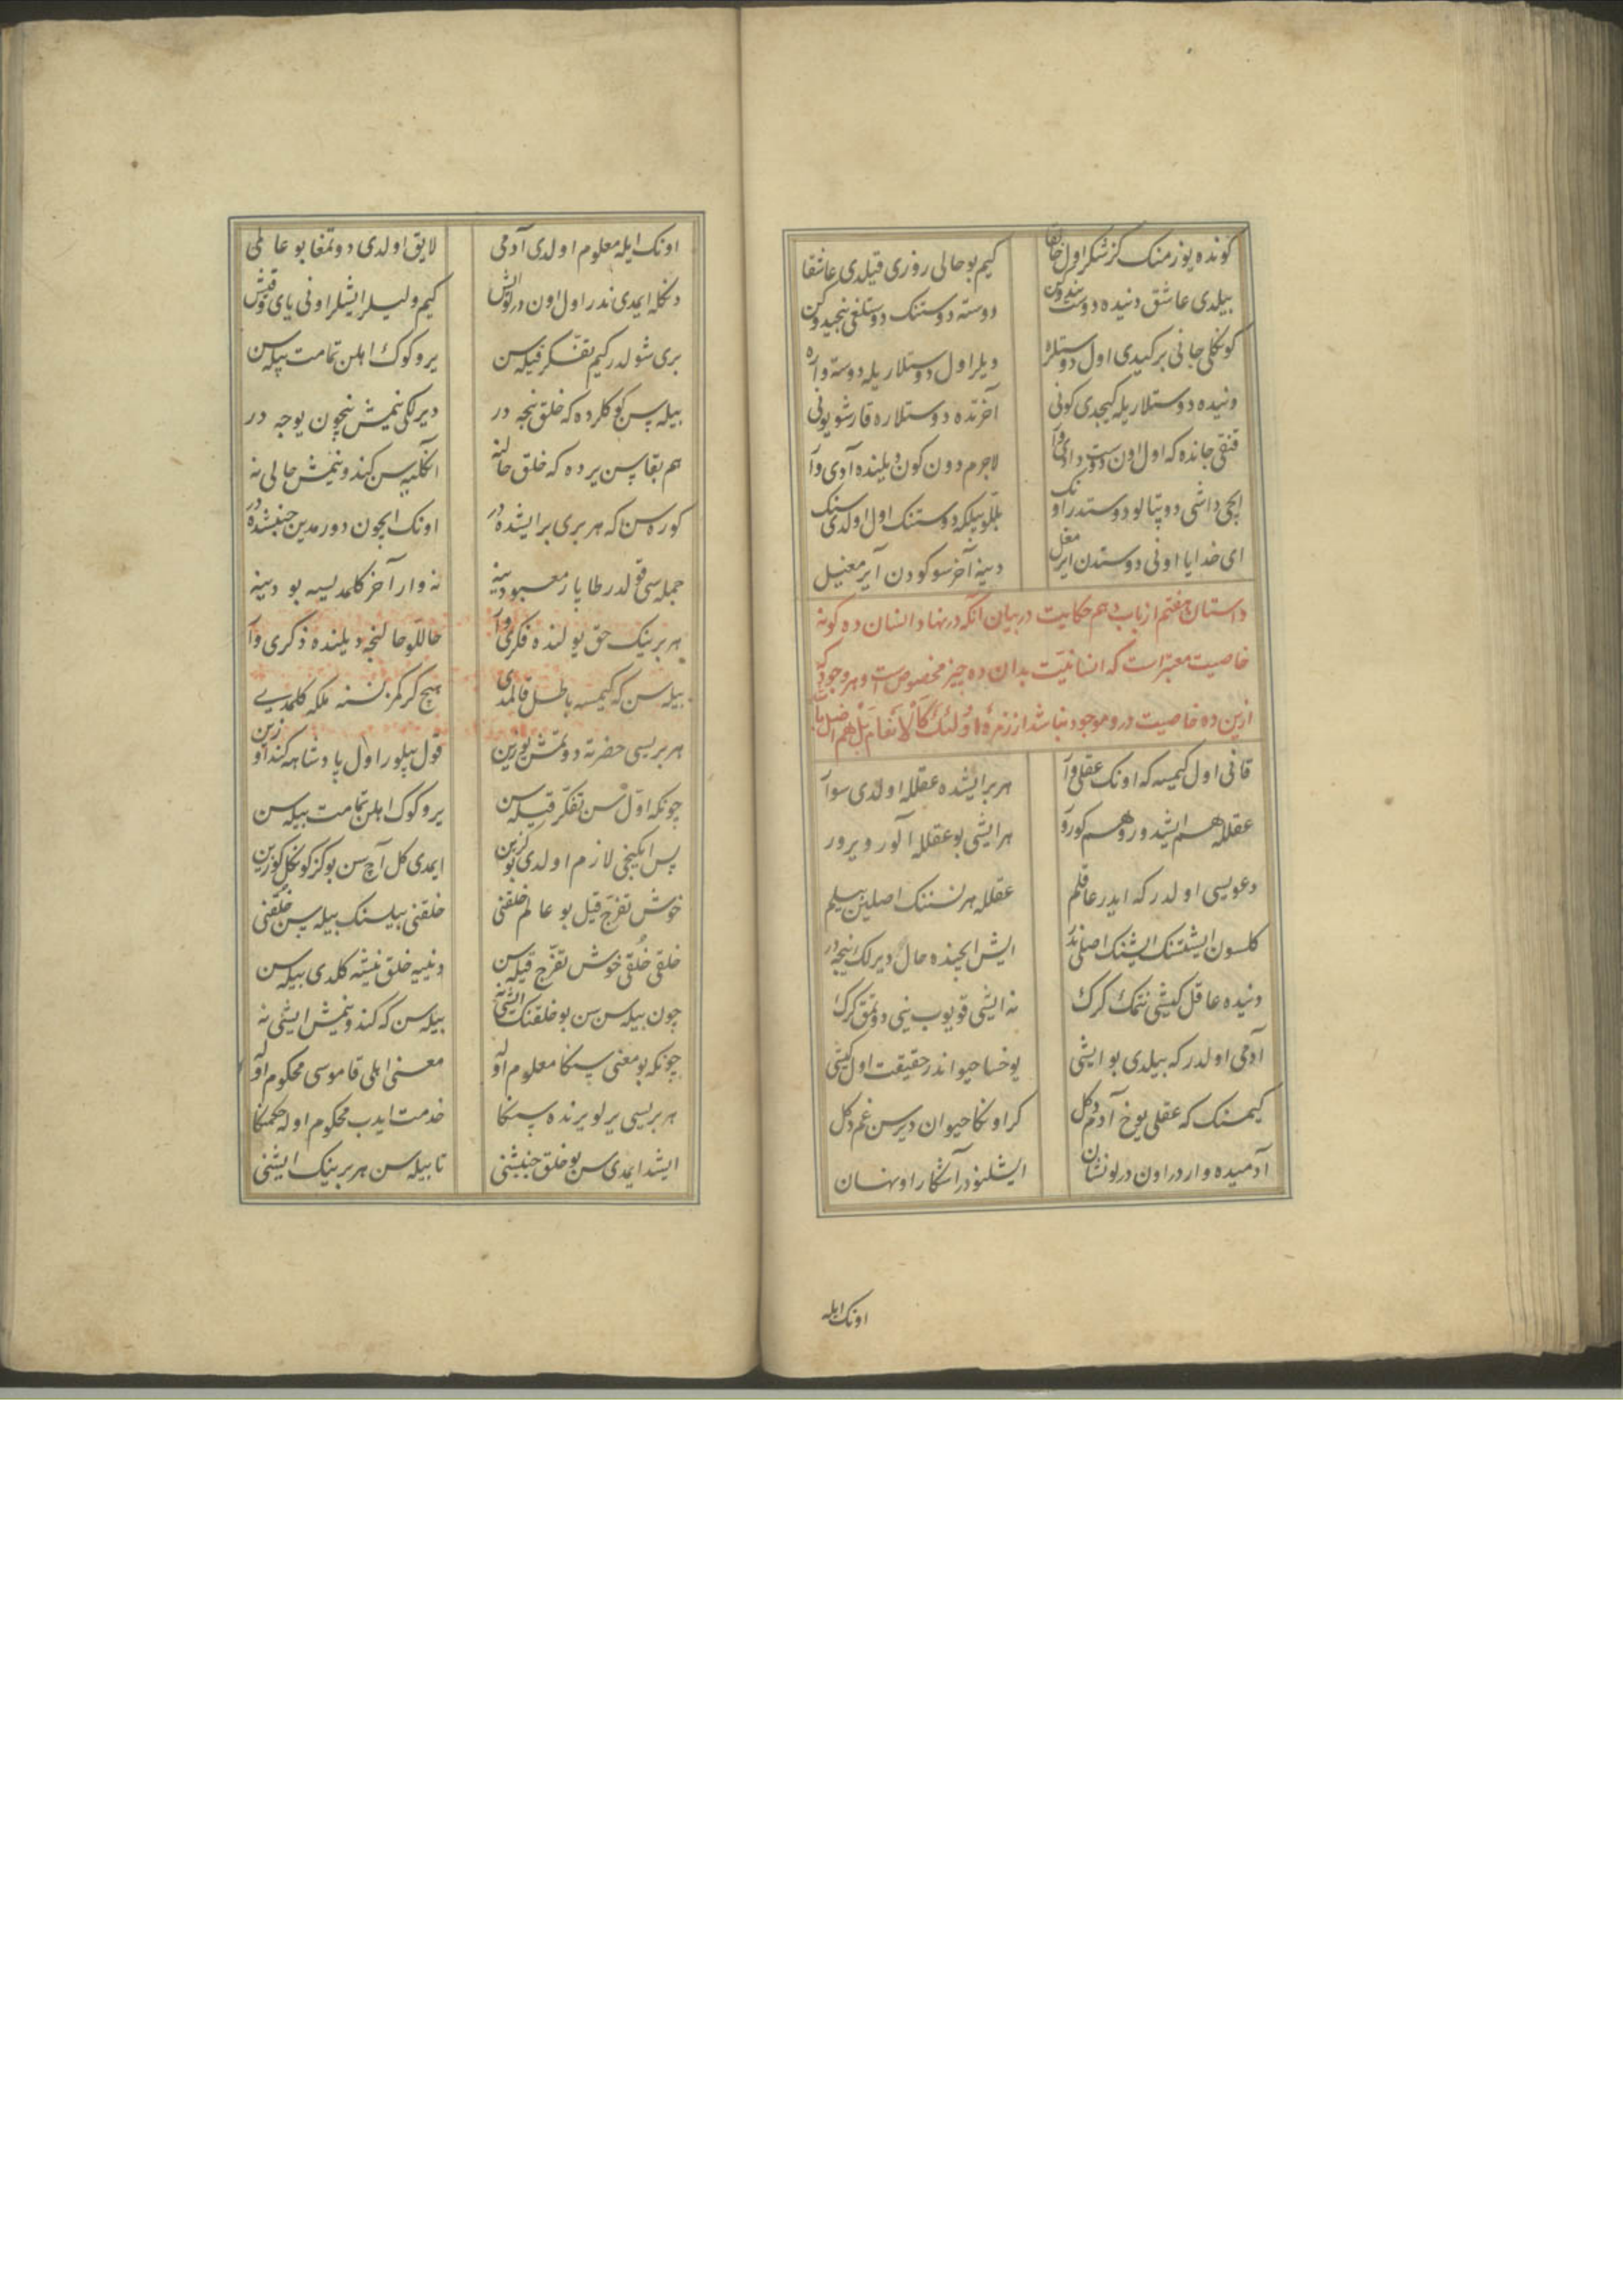 كونده يوز منك كز شكر اول خالقا
كيم بو حالى روزى قيلدى عاشقا
بيلدى عاشق دنيده دوست نيدوكن
دوسته دوستنك دوستلغى نيجيدوكن
كونكلى جانى بركيدى اول دوستلره
ديلر اول دوستلاريله دوسته واره
دنيده دوستلاريله كيجدى كونى
آخرتده دوستلاره قارشو يونى
قنقى جانده كه اول اون دوست دادى وار
لاجرم دون كون ديلنده آدى وار
ايچى داشى دوپتالو دوستدر اونك
بللو بيلكه دوستنك اول اولدى سنك
اى خدايا اونى دوستدن ايرمغل
دينه آخر سوكودن آيرمغيل
داستان هفتم از باب دهم حكايت در بيان آنكه در نهاد انسان ده كونه
خاصيت معتبر است كه انسانيّت بدان ده چيز مخصوص است و هر وجودى كه
ازين ده خاصيت درو موجود نباشد از زمرهٔ اُولئك كَالْاَنعَامِ بَلْ هم اضل باشد
قانى اول كيمسه كه اونك عقلى وار
هر بر ايشده عقلله اولدى سوار
عقلله هم ايشيدور و هم كورور
هر ايشى بو عقلله آلور ويرور
دعويسى اولدر كه ايدر عاقلم
عقلله هر نسننك اصلين بيلم
كلسون ايشتسنك ايشنك اصلى ندر
ايش ايچنده حال ديرلك نيجه در
دنيده عاقل كيشى نتمك كرك
نه ايشى قويوب نيى دوتمق كرك
آدمى اولدر كه بيلدى بو ايشى
يوخسا حيواندر حقيقت اول كيشى
كيمسنك كه عقلى يوخ آدم دكل
كر اونكا حيوان ديرسن غم دكل
آدميده واردر اون درلو نشان
ايشلنودر آشكار او نهان
اونك ايله
اونك ايله معلوم اولدى آدمى
لايق اولدى دوتمغا بو عالمى
دنكله ايمدى ندر اول اون درلو ايش
كيم وليلر ايشلر اونى ياى و قيش
برى شولدر كيم تفكر قيله سن
ير و كوك اهلن تمامت بيله سن
بيله سن كوكلرده كه خلق نيجه در
ديرلكى نيمش نيچون يوجه در
هم بقاسن يرده كه خلق حالنه
آنكليه سن كندو نيمش حالى نه
كوره سن كه هر برى بر ايشده در
اونك ايچون دورمدين جنبشده در
جمله سى قولدر طاپار معبودينه
نه وار آخر كلمديسه بو دينه
هر برينك حق يولنده فكرى وار
حاللو حالنجه ديلنده ذكرى وار
بيله سن كه كيمسه باطل قالمدى
هيچ كركمز نسنه ملكه كلمدى
هر بريسى حضرته دوتمش يوزين
قول بيلور اول پادشاهه كندوزين
چونكه اوّل سن تفكّر قيله سن
ير و كوك اهلن تمامت بيله سن
پس ايكنجى لازم اولدى بو كزين
ايمدى كل آچ سن بو كز كونكل كوزين
خوش تفرّج قيل بو عالم خلقنى
خلقنى بيلسنك بيله سن خُلقنى
خلقى خُلقى خوش تفرّج قيله سن
دنييه خلق نيشه كلدى بيله سن
چون بيله سن سن بو خلقنك ايشى نه
بيله سن كه كندو نيمش ايشى نه
چونكه بو معنى سنكا معلوم اوله
معنى اهلى قاموسى محكوم اوله
هر بريسى يرلو يرنده سنكا
خدمت ايدب محكوم اوله حكمنكا
ايشد ايمدى سن بو خلق جنبشنى
تا بيله سن هر برينك ايشنى